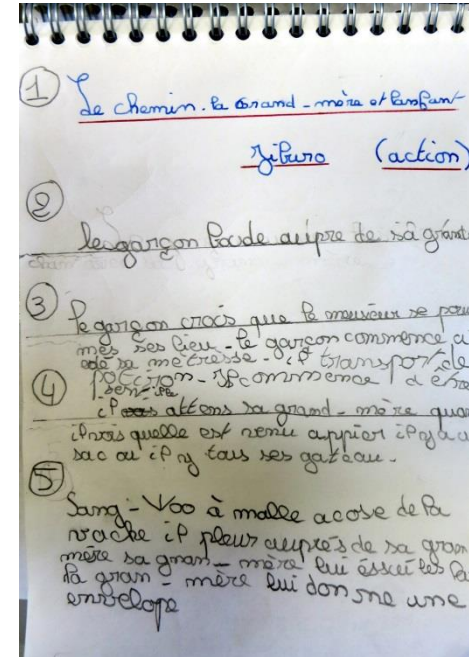 1 Le chemin. la Grand-mère et l'anfant
Jiburo (action)
2
les garçon boude aupre de sa grand
3 le garçon crois que le meusieur se pou
mes ses lieu - le garçon commence a
de sa métresse - il transport de
4 potiron - Il commence d'être
sentre
il attens sa grand-mère qua
il vois quelle est venu appier il y a u
sac ou il y tous ses gateau.
5
Sang-Woo à malle acose de la
vache il pleur auprès de sa gran
mère sa gran-mère lui éssui les la
la gran-mère lui donne une
envelope